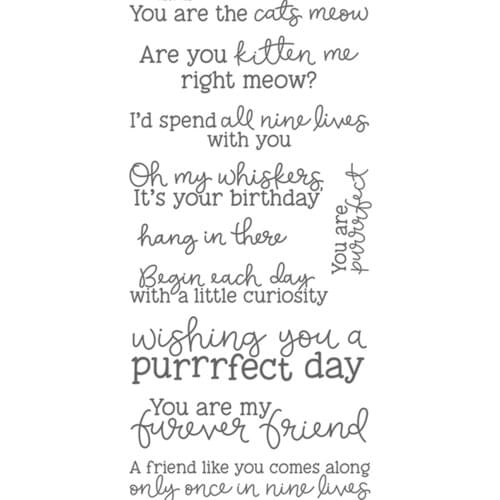 You are the cats meow
Are you kitten me
right meow?
I'd spend all nine lives
with you
Oh my whiskers,
It's your birthday
You are
purrrfect
hang in there
Begin each day
with a little curiosity
wishing you a
purrrfect day
You are my
furever friend
A friend like you comes along
only once in nine lives